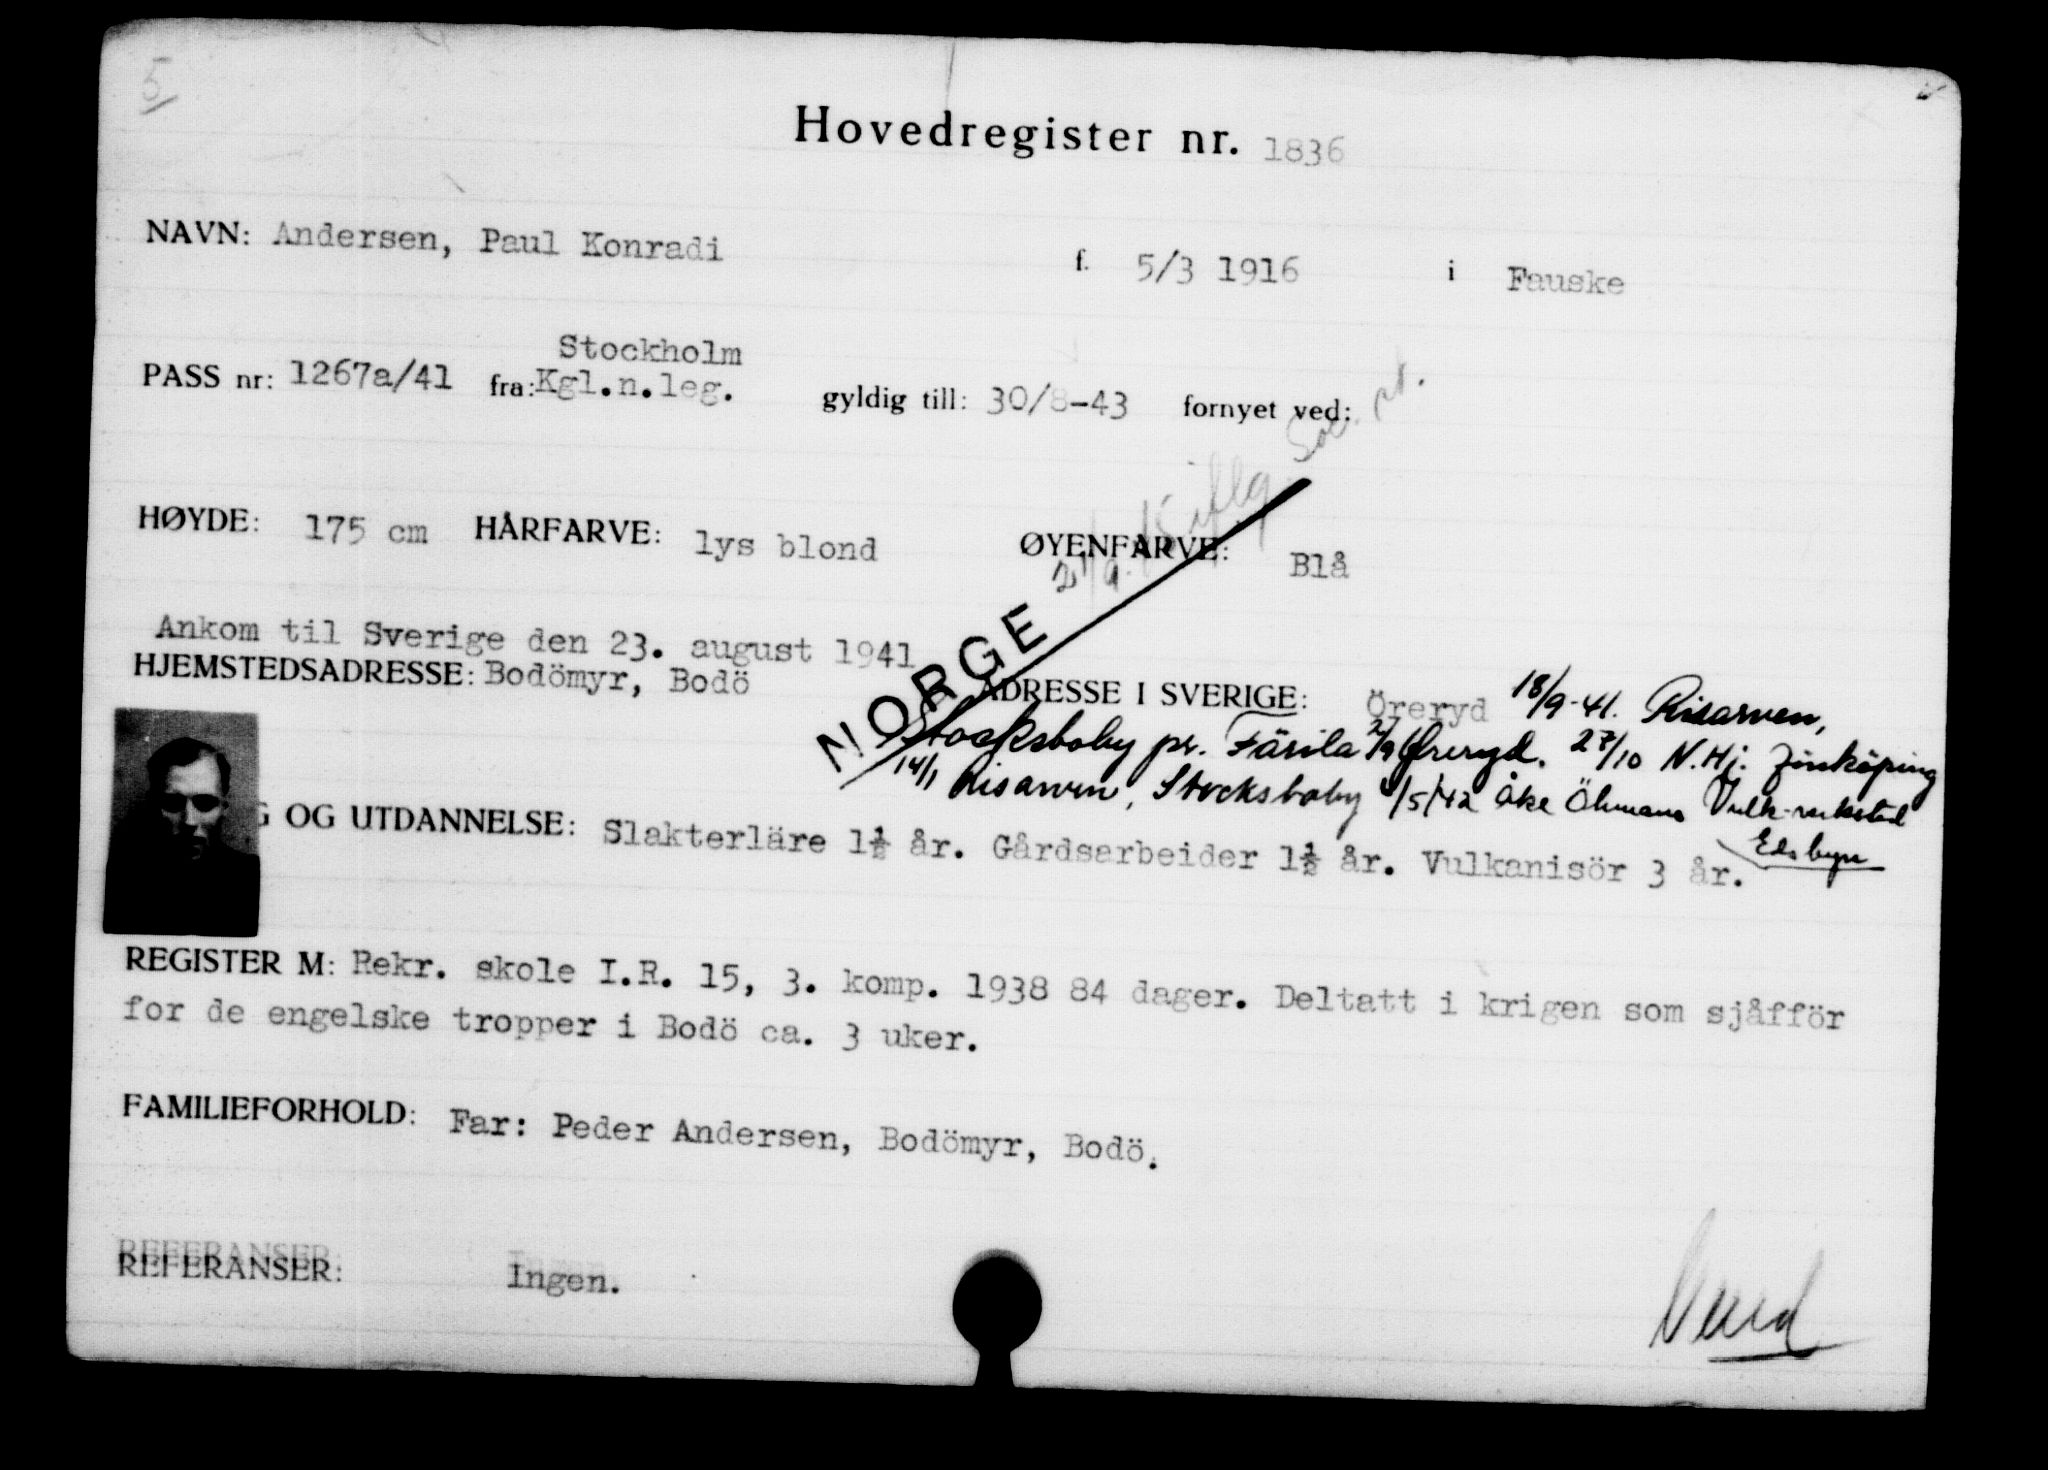 5
Hovedregister nr. 1836
NAVN: Andersen, Paul Konradi f. 5/3 1916 i Fauske
Stockholm
PASS nr: 1267a/41 fra: Kgl.n.leg. gyldig till: 30/8-43 fornyet ved:
HØYDE: 175 cm HÅRFARVE: lys blond ØYENFARVE: Blå
21/9.
NORGE
Ankom til Sverige den 23. august 1941
HJEMSTEDSADRESSE: Bodömyr, Bodö ADRESSE I SVERIGE: Öreryd 18/9-41. Risarven,
Stocksboby pr. Färila 27/9 Öreryd. 27/10 N.Hj. Jönköping
14/1 Risarven, Stocksboby 4/5/42 Åke Öhmans Vulk.verksted
Edsbyn
G OG UTDANNELSE: Slakterläre 1½ år. Gårdsarbeider 1½ år. Vulkanisör 3 år.
REGISTER M: Rekr. skole I.R. 15, 3. komp. 1938 84 dager. Deltatt i krigen som sjåfför
for de engelske tropper i Bodö ca. 3 uker.
FAMILIEFORHOLD: Far: Peder Andersen, Bodömyr, Bodö.
REFERANSER: Ingen.